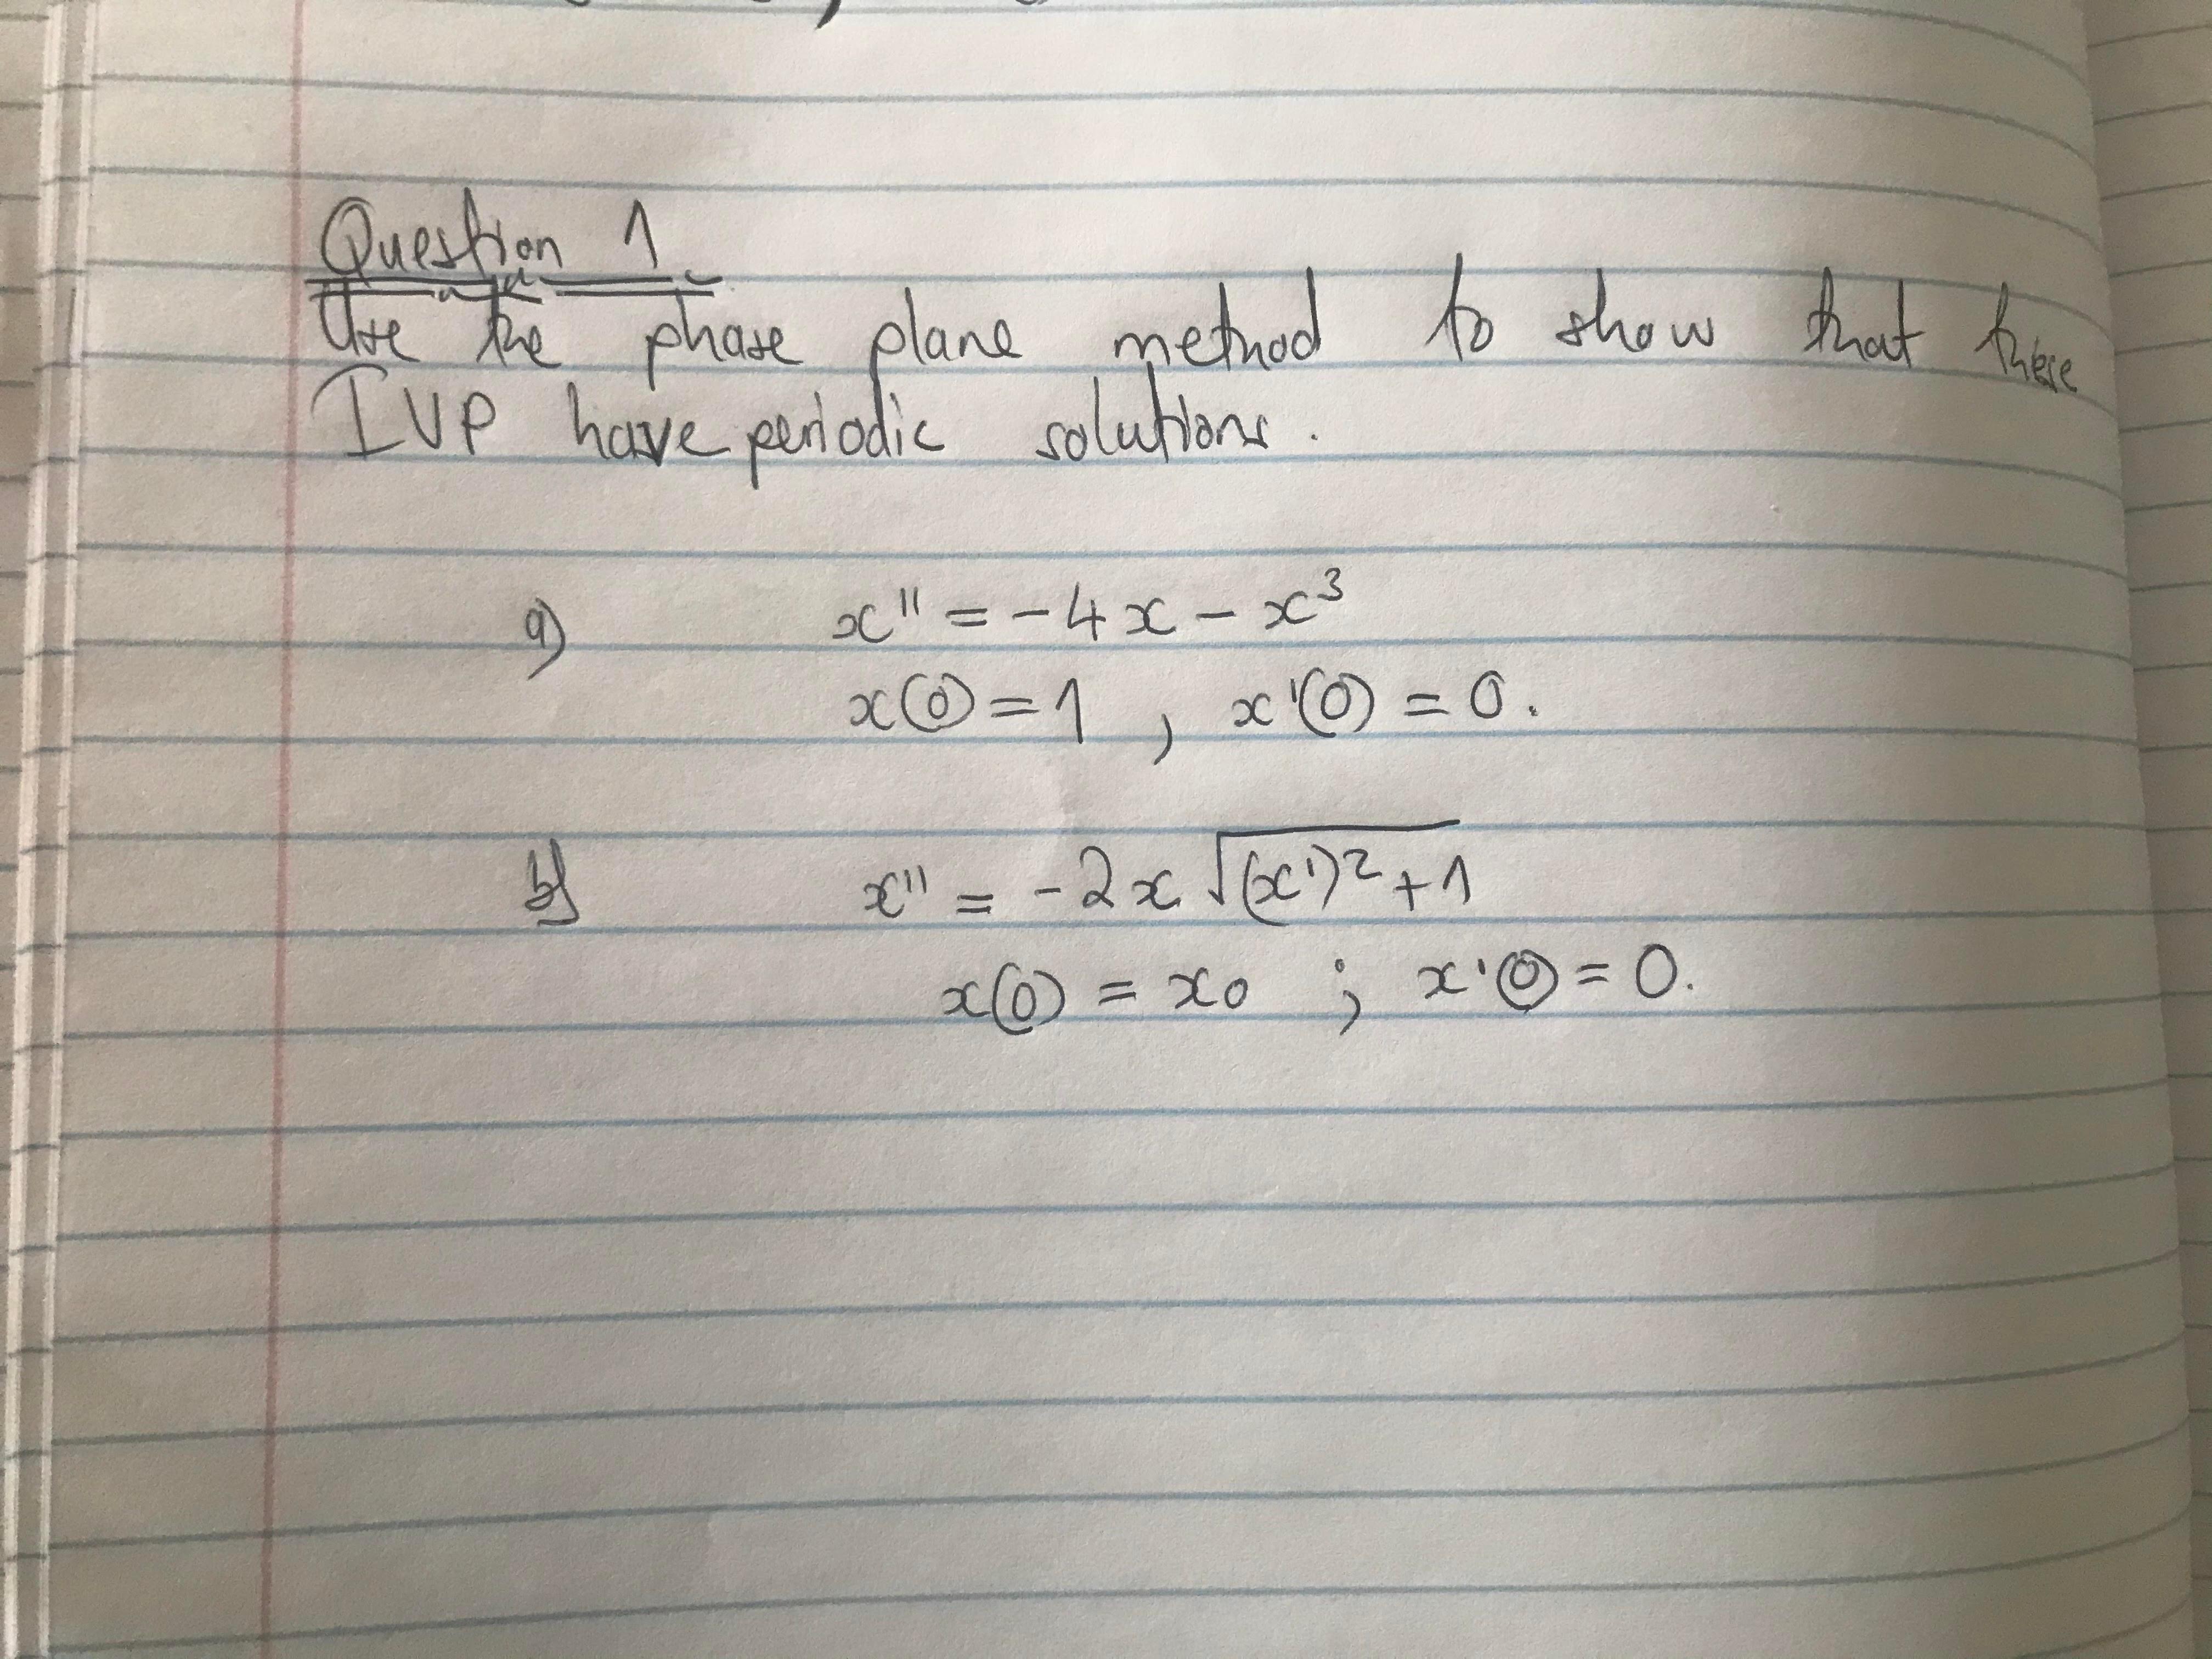 Question 1
Use the phase plane method to show that these
IVP have periodic solutions.
a) x'' = -4x - x³
x(0) = 1 , x'(0) = 0.
b) x'' = -2x √((x')² + 1)
x(0) = x₀ ; x'(0) = 0.